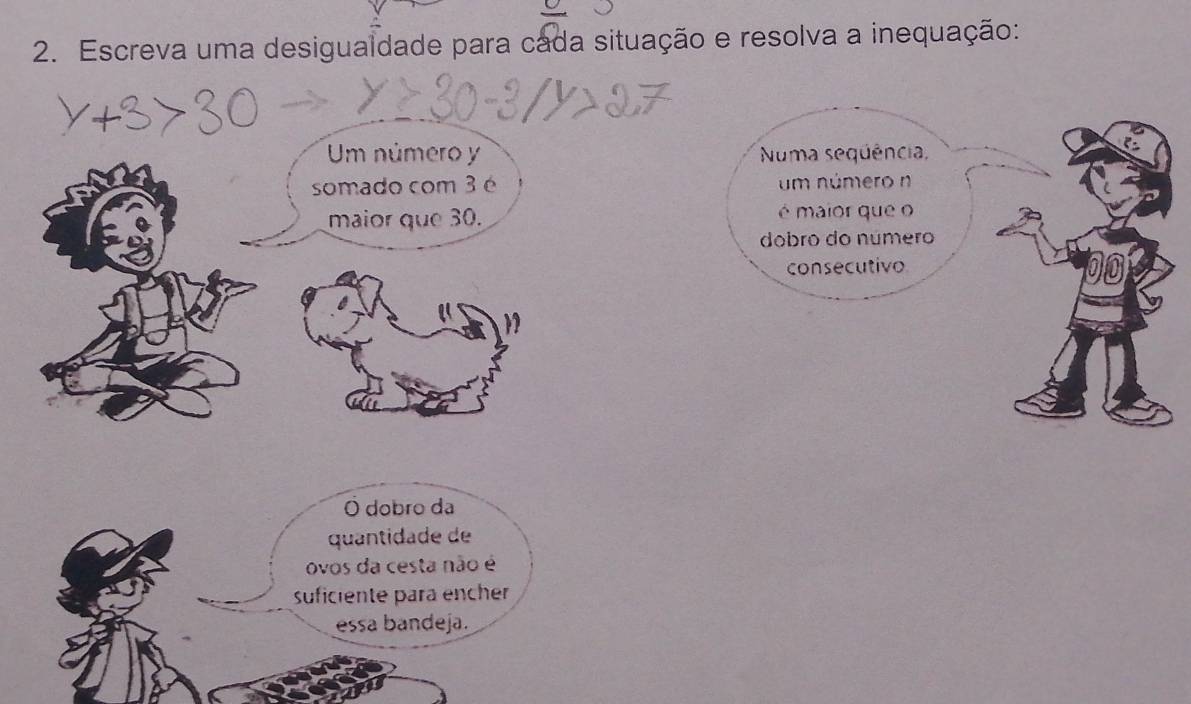 2. Escreva uma desigualdade para cada situação e resolva a inequação:
y+3>30 → y>30-3/y>27
Um número y
somado com 3 é
maior que 30.
Numa seqüência,
um número n
é maior que o
dobro do número
consecutivo
00
O dobro da
quantidade de
ovos da cesta não é
suficiente para encher
essa bandeja.